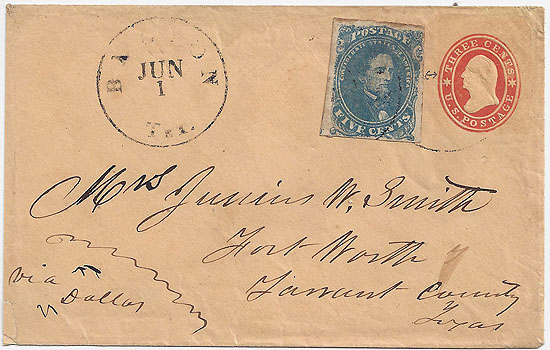 BASTROP
JUN
1
Tex.
POSTAGE
CONFEDERATE STATES OF AMERICA
FIVE CENTS
THREE CENTS
U.S. POSTAGE
Mrs Junius W. Smith
Fort Worth
Tarrant County
Texas
via
Dallas